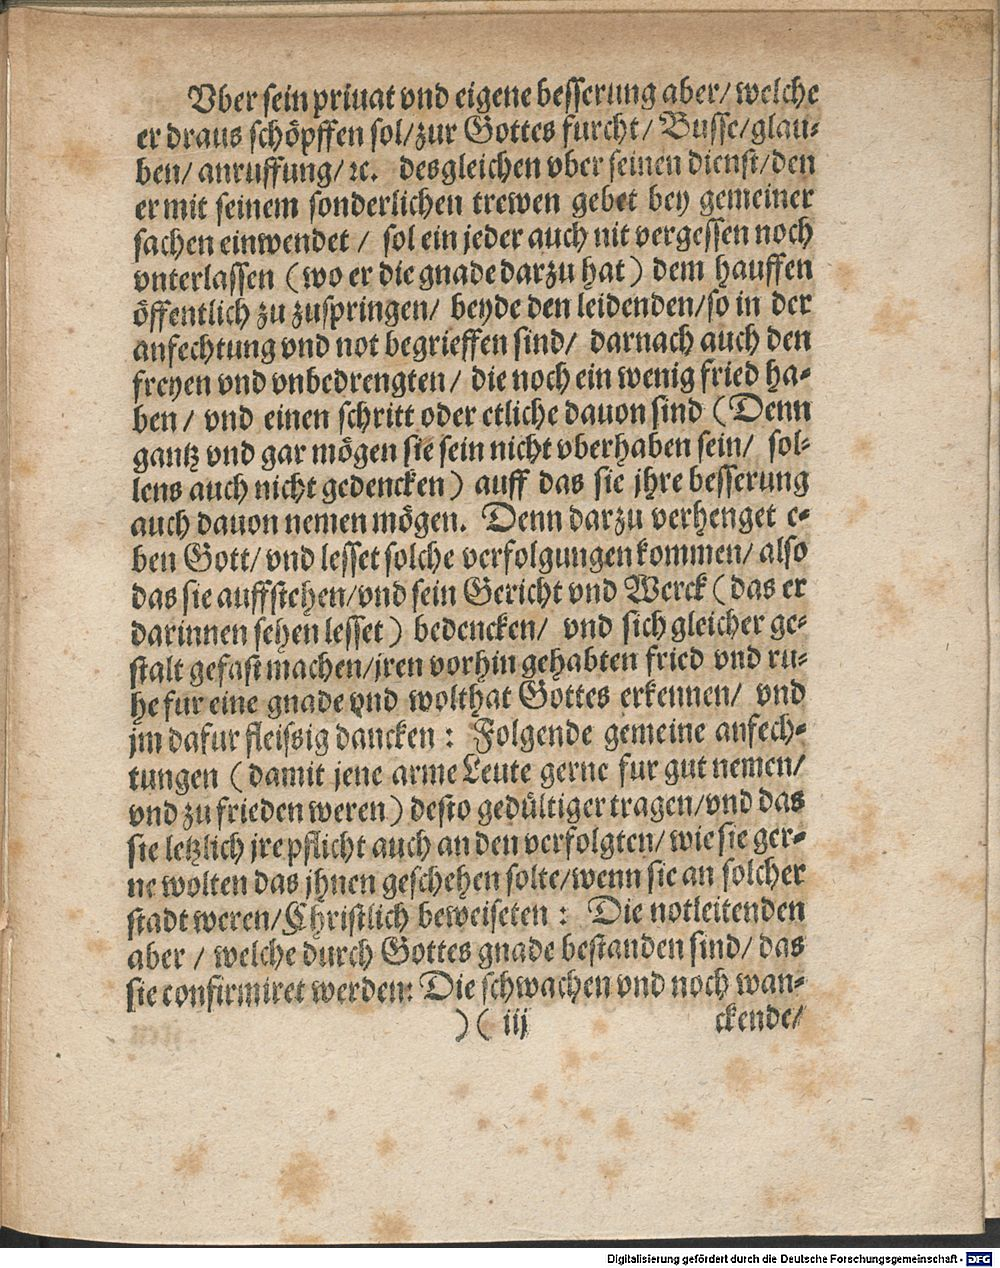 Vber sein priuat vnd eigene besserung aber/ welche
er draus schöpffen sol/ zur Gottes furcht/ Busse/ glau-
ben/ anruffung/ ꝛc. desgleichen vber seinen dienst/ den
er mit seinem sonderlichen trewen gebet bey gemeiner
sachen einwendet / sol ein jeder auch nit vergessen noch
vnterlassen (wo er die gnade darzu hat) dem hauffen
öffentlich zu zuspringen/ beyde den leidenden/ so in der
anfechtung vnd not begrieffen sind/ darnach auch den
freyen vnd vnbedrengten/ die noch ein wenig fried ha-
ben/ vnd einen schritt oder etliche dauon sind (Denn
gantz vnd gar mögen sie sein nicht vberhaben sein/ sol-
lens auch nicht gedencken) auff das sie jhre besserung
auch dauon nemen mögen. Denn darzu verhenget e-
ben Gott/ vnd lesset solche verfolgungen kommen/ also
das sie auffstehen/ vnd sein Gericht vnd Werck (das er
darinnen sehen lesset) bedencken/ vnd sich gleicher ge-
stalt gefast machen/ jren vorhin gehabten fried vnd ru-
he fur eine gnade vnd wolthat Gottes erkennen/ vnd
jm dafur fleissig dancken: Folgende gemeine anfech-
tungen (damit jene arme Leute gerne fur gut nemen/
vnd zu frieden weren) desto gedültiger tragen/ vnd das
sie letzlich jre pflicht auch an den verfolgten/ wie sie ger-
ne wolten das jhnen geschehen solte/ wenn sie an solcher
stadt weren/ Christlich beweiseten: Die notleitenden
aber / welche durch Gottes gnade bestanden sind/ das
sie confirmiret werden: Die schwachen vnd noch wan-
)( iij ckende/
Digitalisierung gefördert durch die Deutsche Forschungsgemeinschaft - DFG